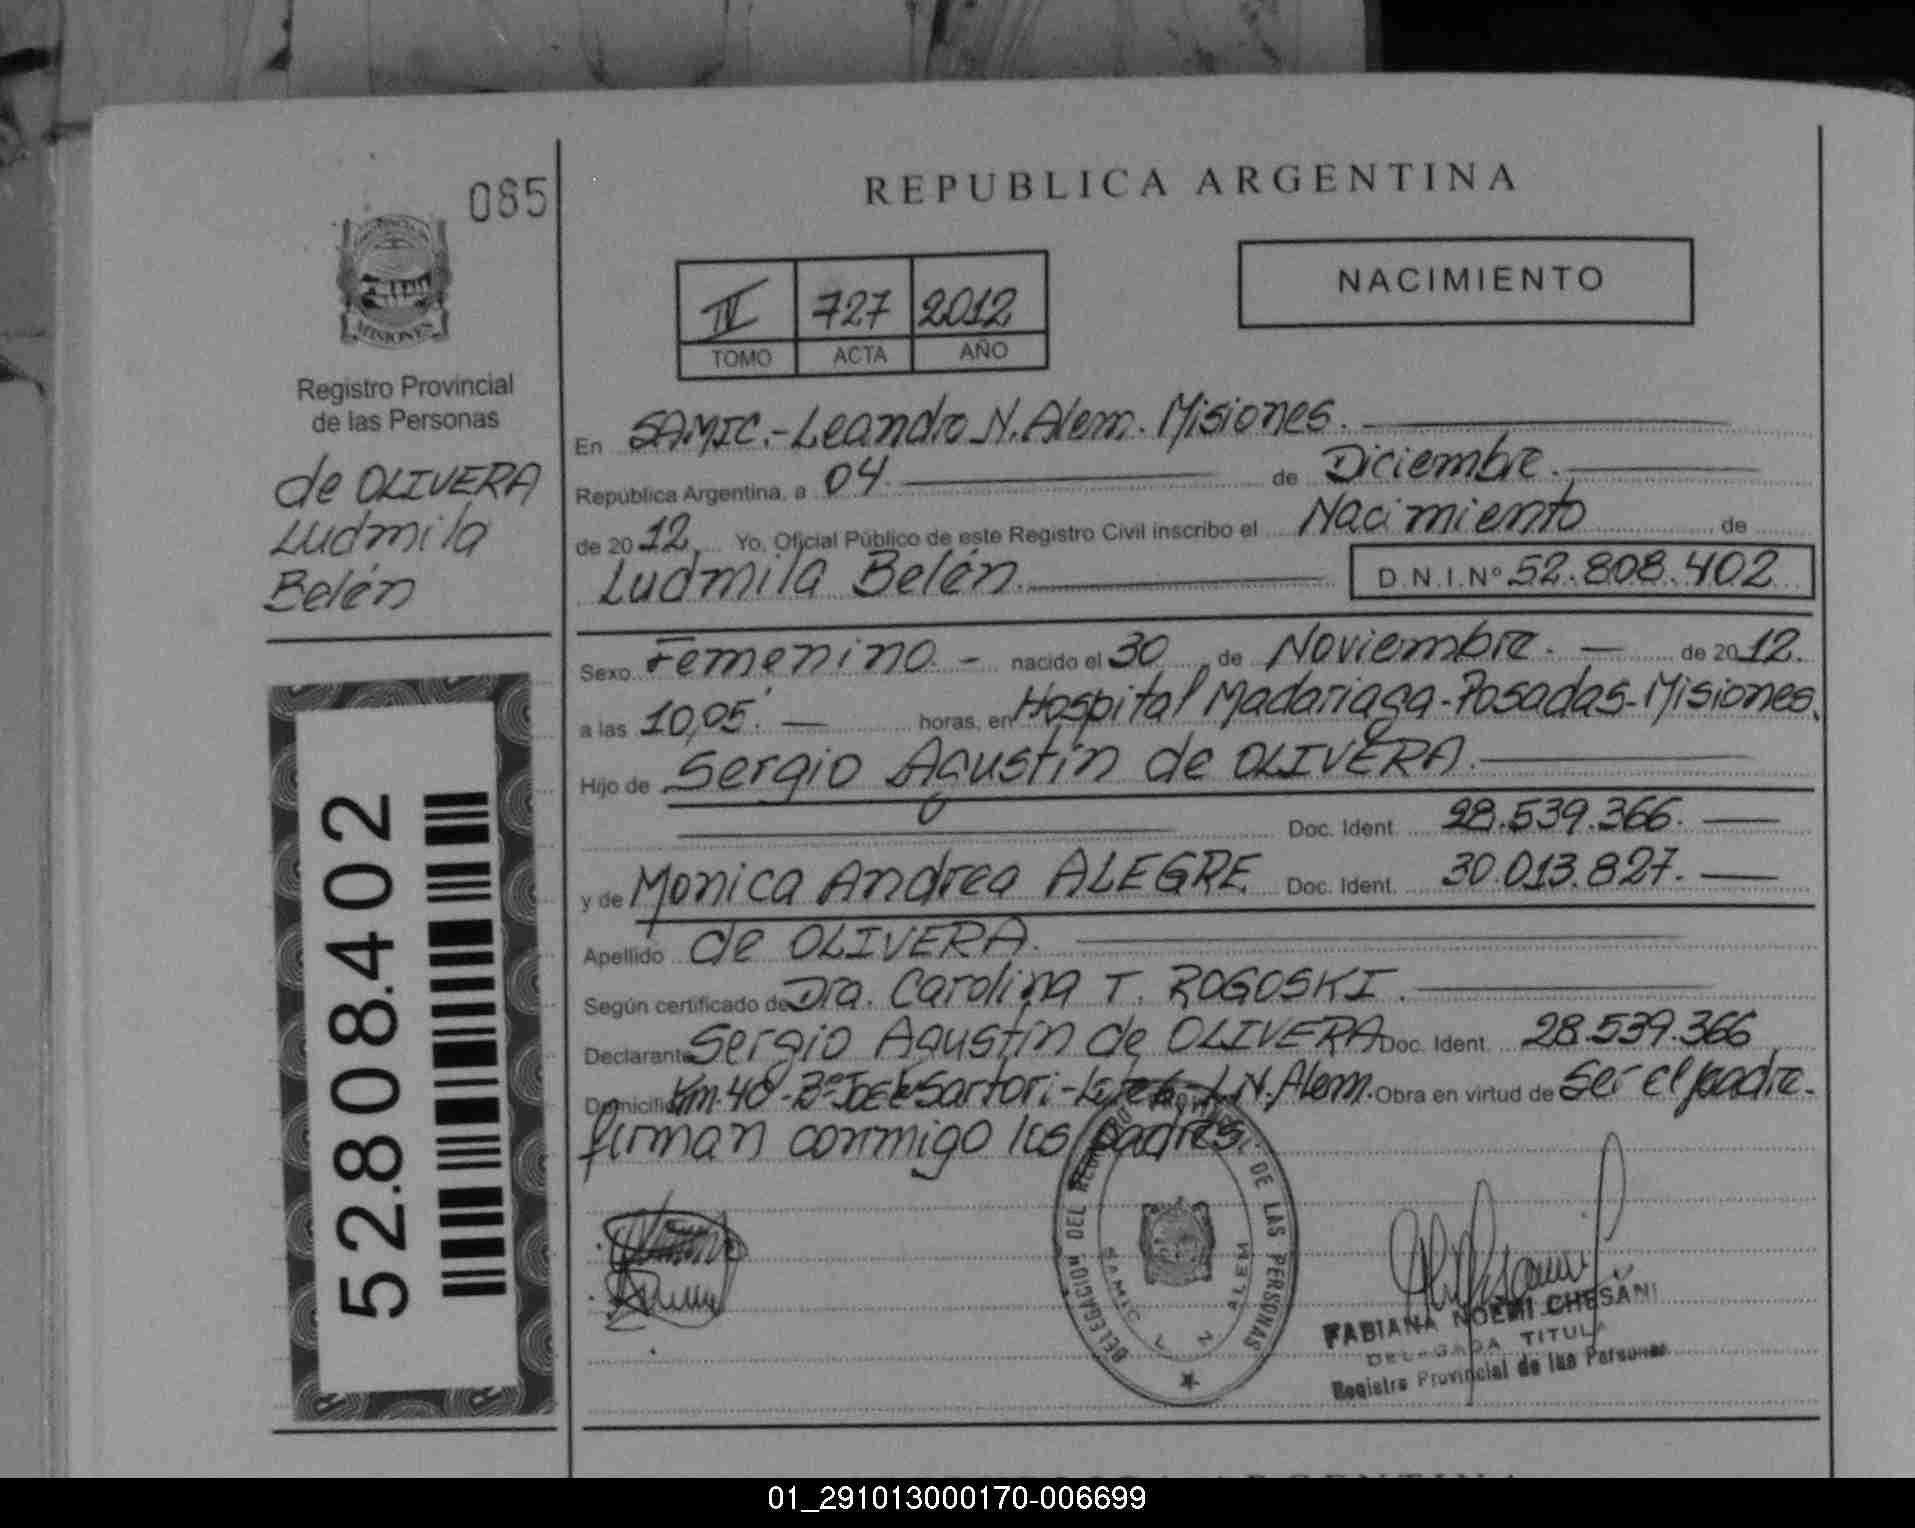 085
REPUBLICA ARGENTINA
NACIMIENTO
IV 727 2012
TOMO ACTA AÑO
MISIONES
Registro Provincial
de las Personas
de OLIVERA
Ludmila
Belén
52.808.402
En SAMIC.-Leandro N. Alem. Misiones.
República Argentina, a 04 de Diciembre.
de 2012 Yo, Oficial Público de este Registro Civil inscribo el Nacimiento de
Ludmila Belén. D.N.I.Nº 52.808.402
Sexo Femenino. - nacido el 30 de Noviembre. - de 2012.
a las 10,05'. - horas, en Hospital Madariaga-Posadas-Misiones.
Hijo de Sergio Agustín de OLIVERA.
Doc. Ident. 28.539.366.
y de Monica Andrea ALEGRE. Doc. Ident. 30.013.827.
Apellido de OLIVERA.
Según certificado de Dra. Carolina T. ROGOSKI.
Declarante Sergio Agustín de OLIVERA Doc. Ident. 28.539.366
Domicilio Km.40-Bº José Sartori- L.N.Alem. Obra en virtud de Ser el padre.
firman conmigo los padres.
DELEGACION DEL REGISTRO DE LAS PERSONAS
SAMIC L N ALEM
FABIANA NOEMI CHESANI
DELEGADA TITULA
Registro Provincial de las Personas
01_291013000170-006699